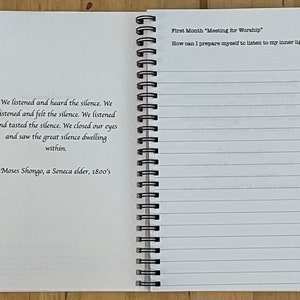 We listened and heard the silence. We
listened and felt the silence. We listened
and tasted the silence. We closed our eyes
and saw the great silence dwelling
within.
Moses Shongo, a Seneca elder, 1800's
First Month "Meeting for Worship"
How can I prepare myself to listen to my inner